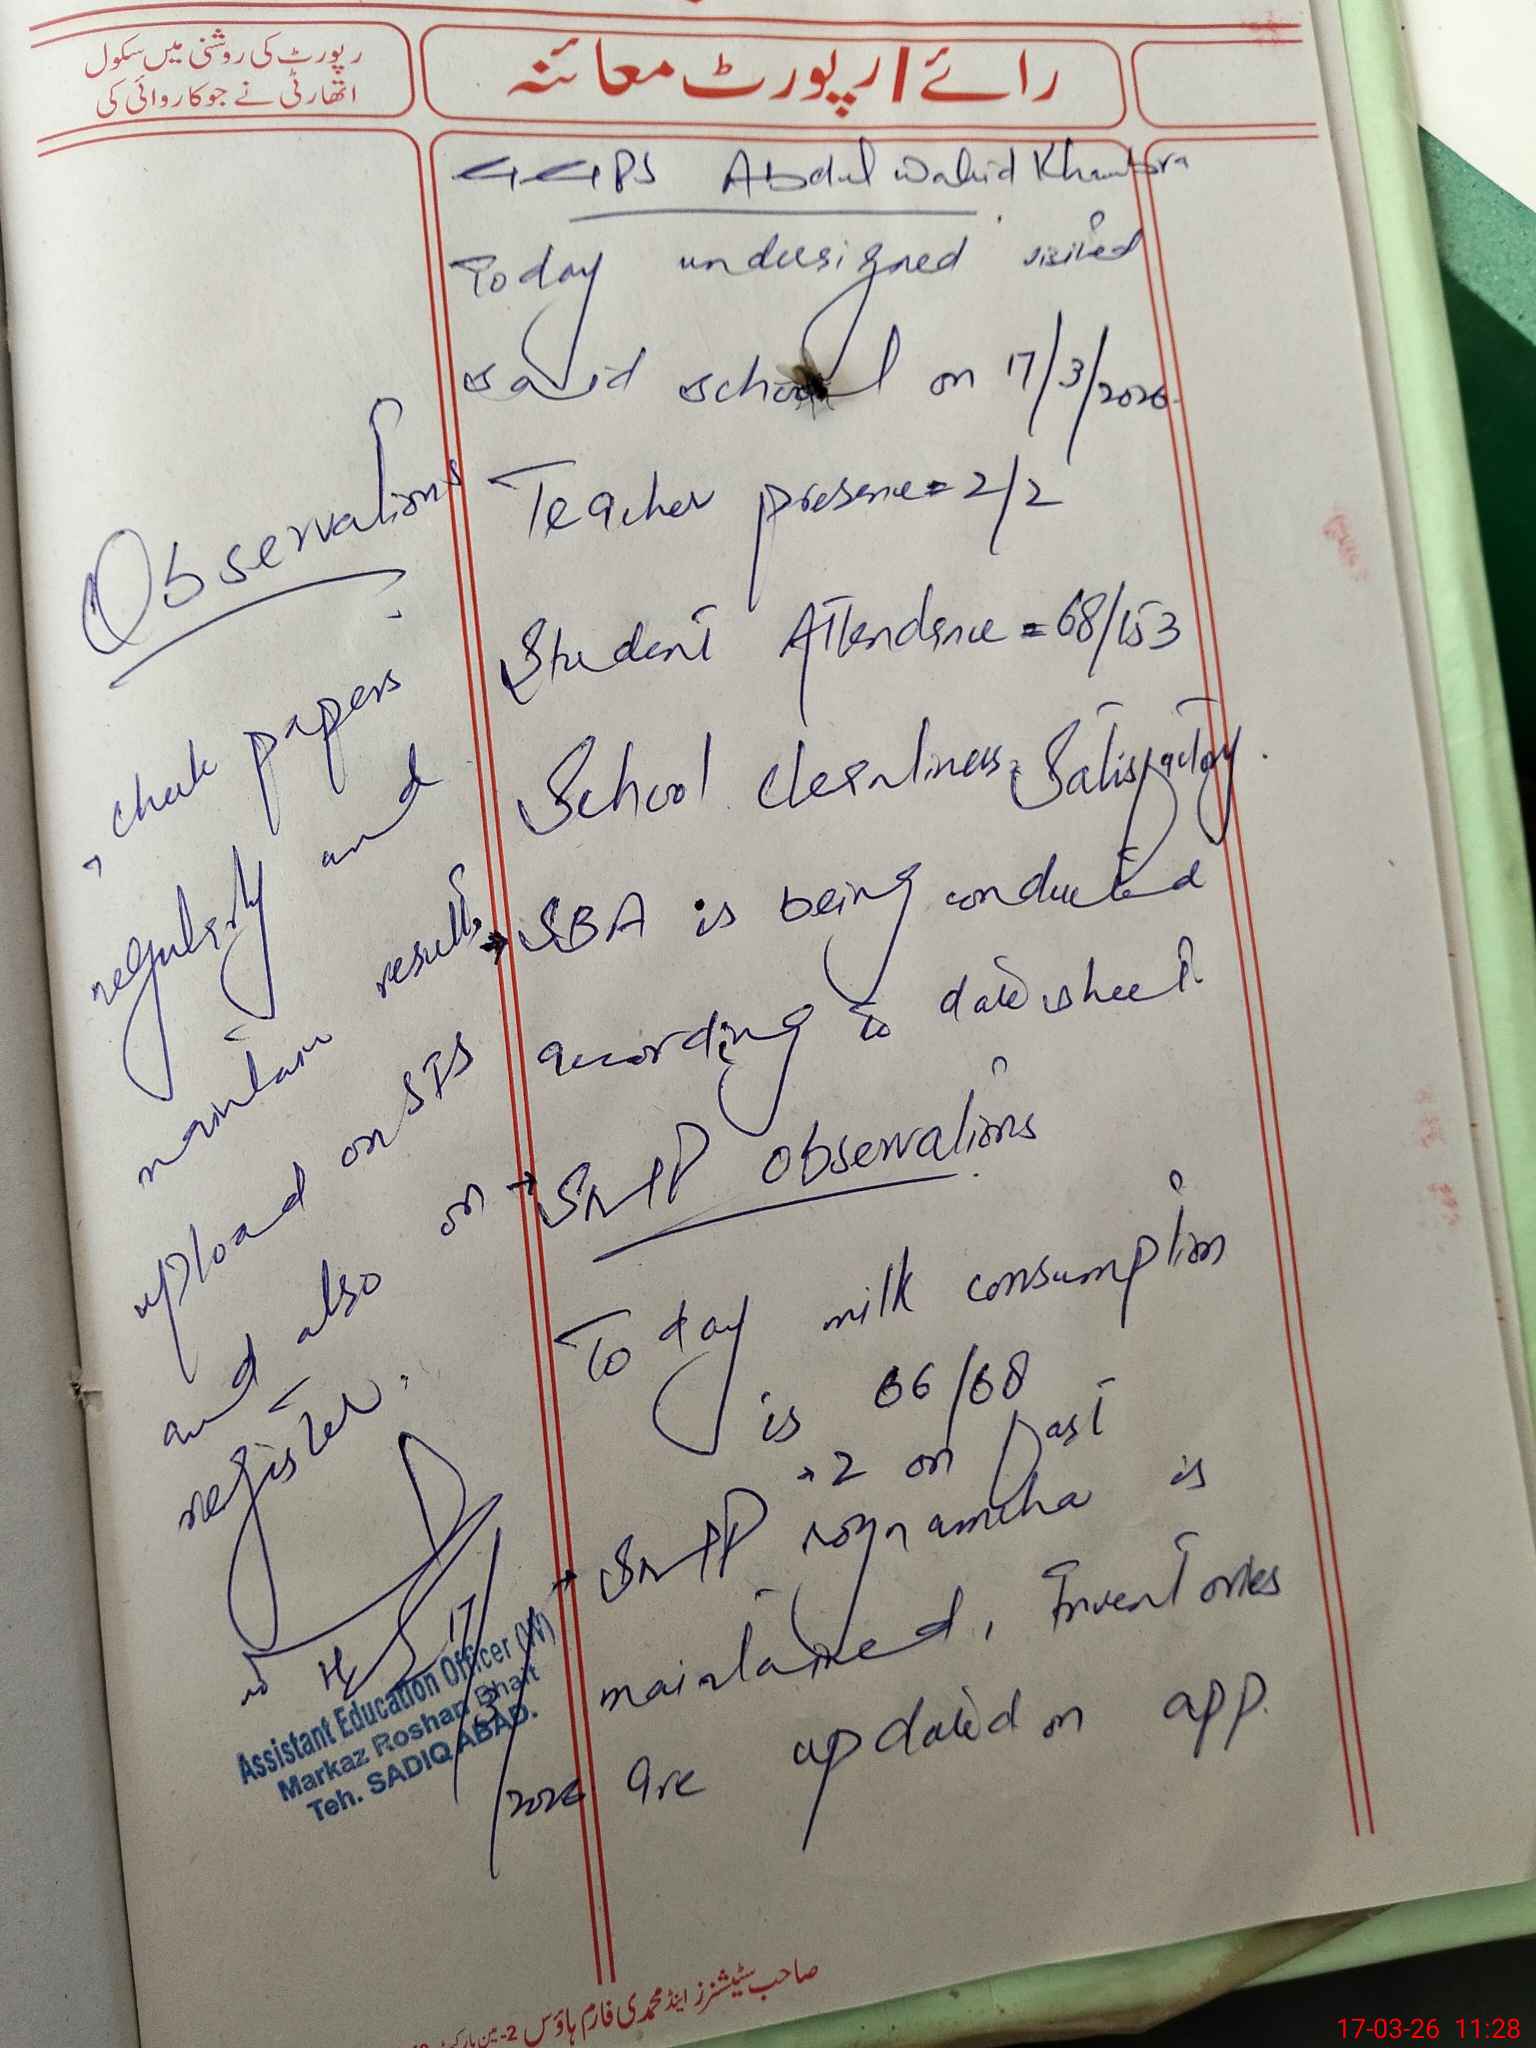 رپورٹ کی روشنی میں سکول
اتھارٹی نے جو کاروائی کی
رائے / رپورٹ معائنہ
GGPS Abdul Wahid Khambra
Today undersigned visited
said school on 17/3/2026.
Teacher presence = 2/2
Student Attendance = 68/153
School cleanliness = Satisfactory.
→ SBA is being conducted
according to date sheet
→ SMP observations
Today milk consumption
is 66/68
→ 2 on fast
→ SMP roznamcha is
maintained, Inventories
are updated on app.
Observations
→ check papers
regularly and
maintain results
upload on SIS
and also on
register.
17/3/2026
Assistant Education Officer (W)
Markaz Roshan Bhait
Teh. SADIQ ABAD.
صاحب سٹیشنرز اینڈ محمدی فارم ہاؤس 2-مین
17-03-26 11:28